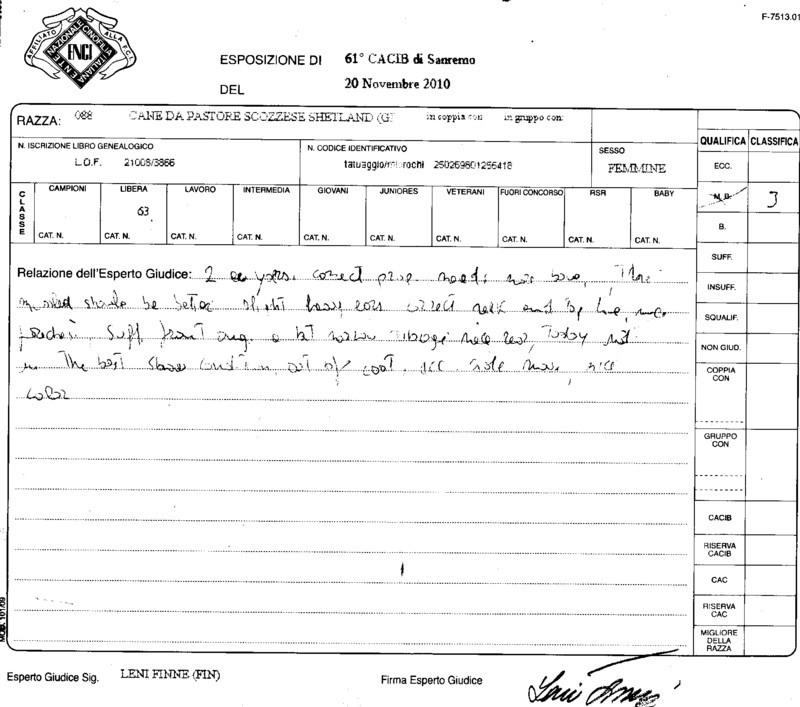 F-7513.01
AFFILIATO ALLA F.C.I.
ENTE NAZIONALE CINOFILIA ITALIANA
ENCI
ESPOSIZIONE DI 61° CACIB di Sanremo
DEL 20 Novembre 2010
RAZZA: 088 CANE DA PASTORE SCOZZESE SHETLAND (GI in coppia con in gruppo con:
QUALIFICA CLASSIFICA
N. ISCRIZIONE LIBRO GENEALOGICO N. CODICE IDENTIFICATIVO SESSO
L.O.F. 21008/3866 tatuaggio/microchi 250269801256418 FEMMINE
ECC.
M.B. 3
CLASSE
CAMPIONI LIBERA LAVORO INTERMEDIA GIOVANI JUNIORES VETERANI FUORI CONCORSO RSR BABY
63
CAT. N. CAT. N. CAT. N. CAT. N. CAT. N. CAT. N. CAT. N. CAT. N. CAT. N. CAT. N.
B.
SUFF.
Relazione dell'Esperto Giudice: 2 years. correct prop. needs more bone,
should be better slight heavy ears correct neck and top line, nice
Suff front ang. a bit narrow nice rear, Today not
in The best show condition, out of coat. move, nice
color
INSUFF.
SQUALIF.
NON GIUD.
COPPIA CON
GRUPPO CON
CACIB
RISERVA CACIB
CAC
RISERVA CAC
MIGLIORE DELLA RAZZA
Esperto Giudice Sig. LENI FINNE (FIN) Firma Esperto Giudice